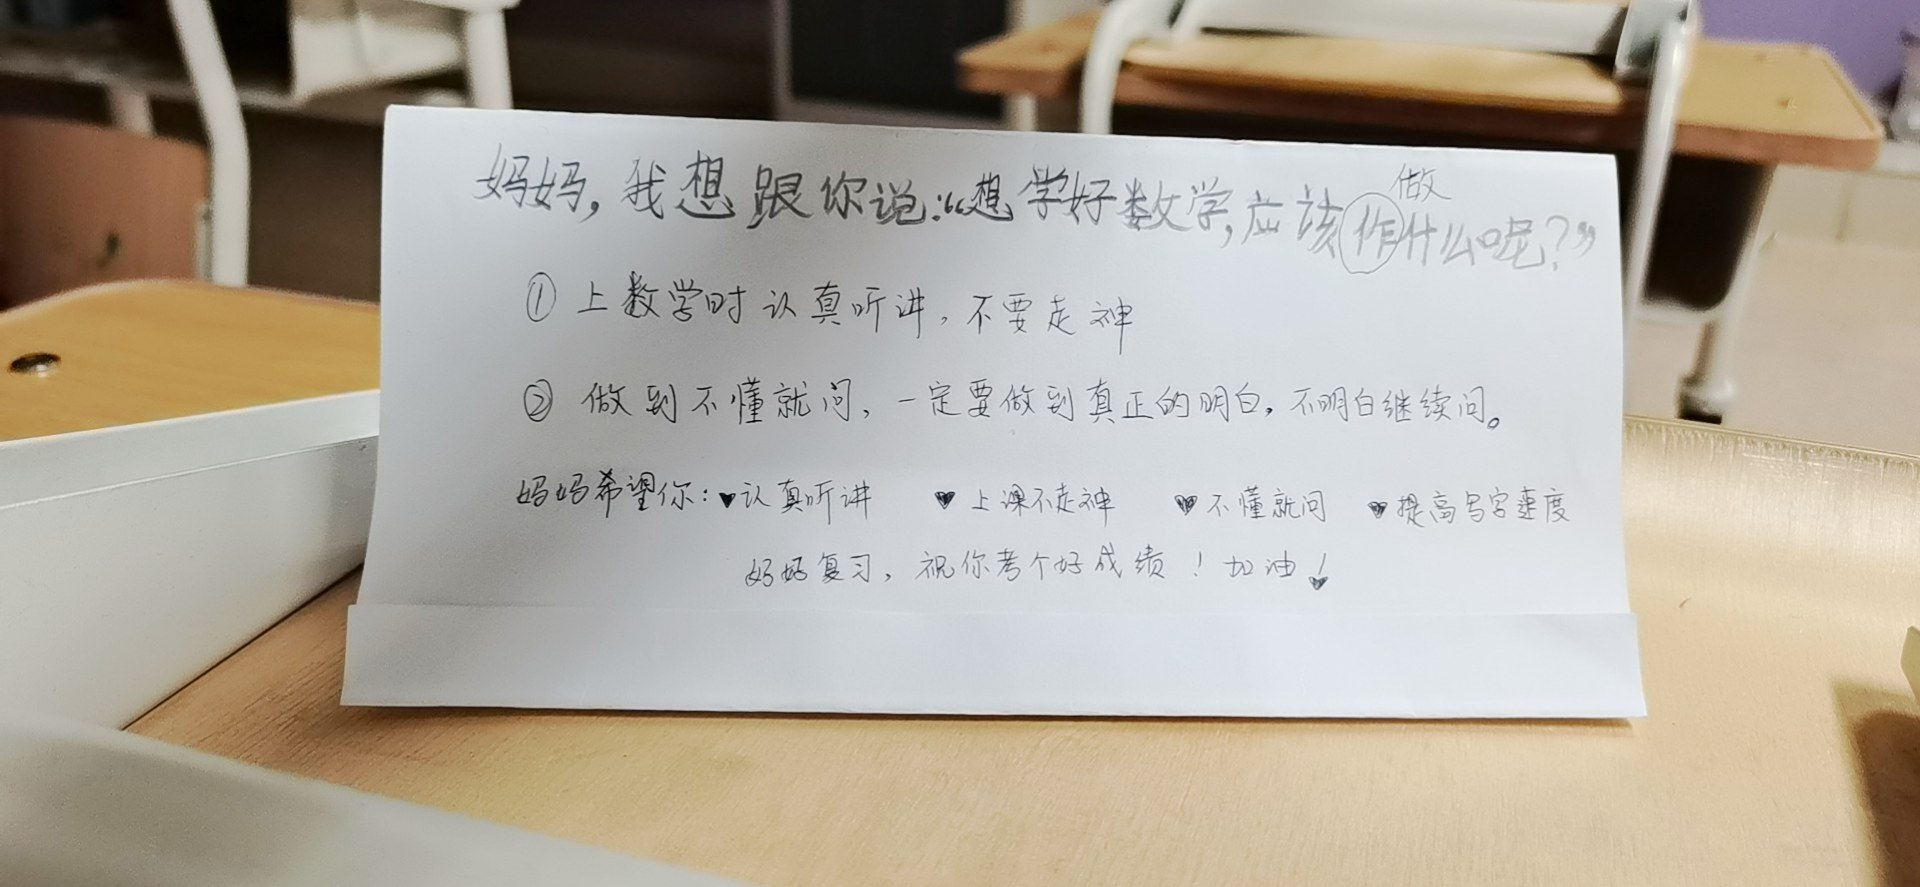 妈妈，我想跟你说：“想学好数学，应该作什么呢？”
做
① 上数学时认真听讲，不要走神
② 做到不懂就问，一定要做到真正的明白，不明白继续问。
妈妈希望你：♥认真听讲 ♥上课不走神 ♥不懂就问 ♥提高写字速度
好好复习，祝你考个好成绩！加油！